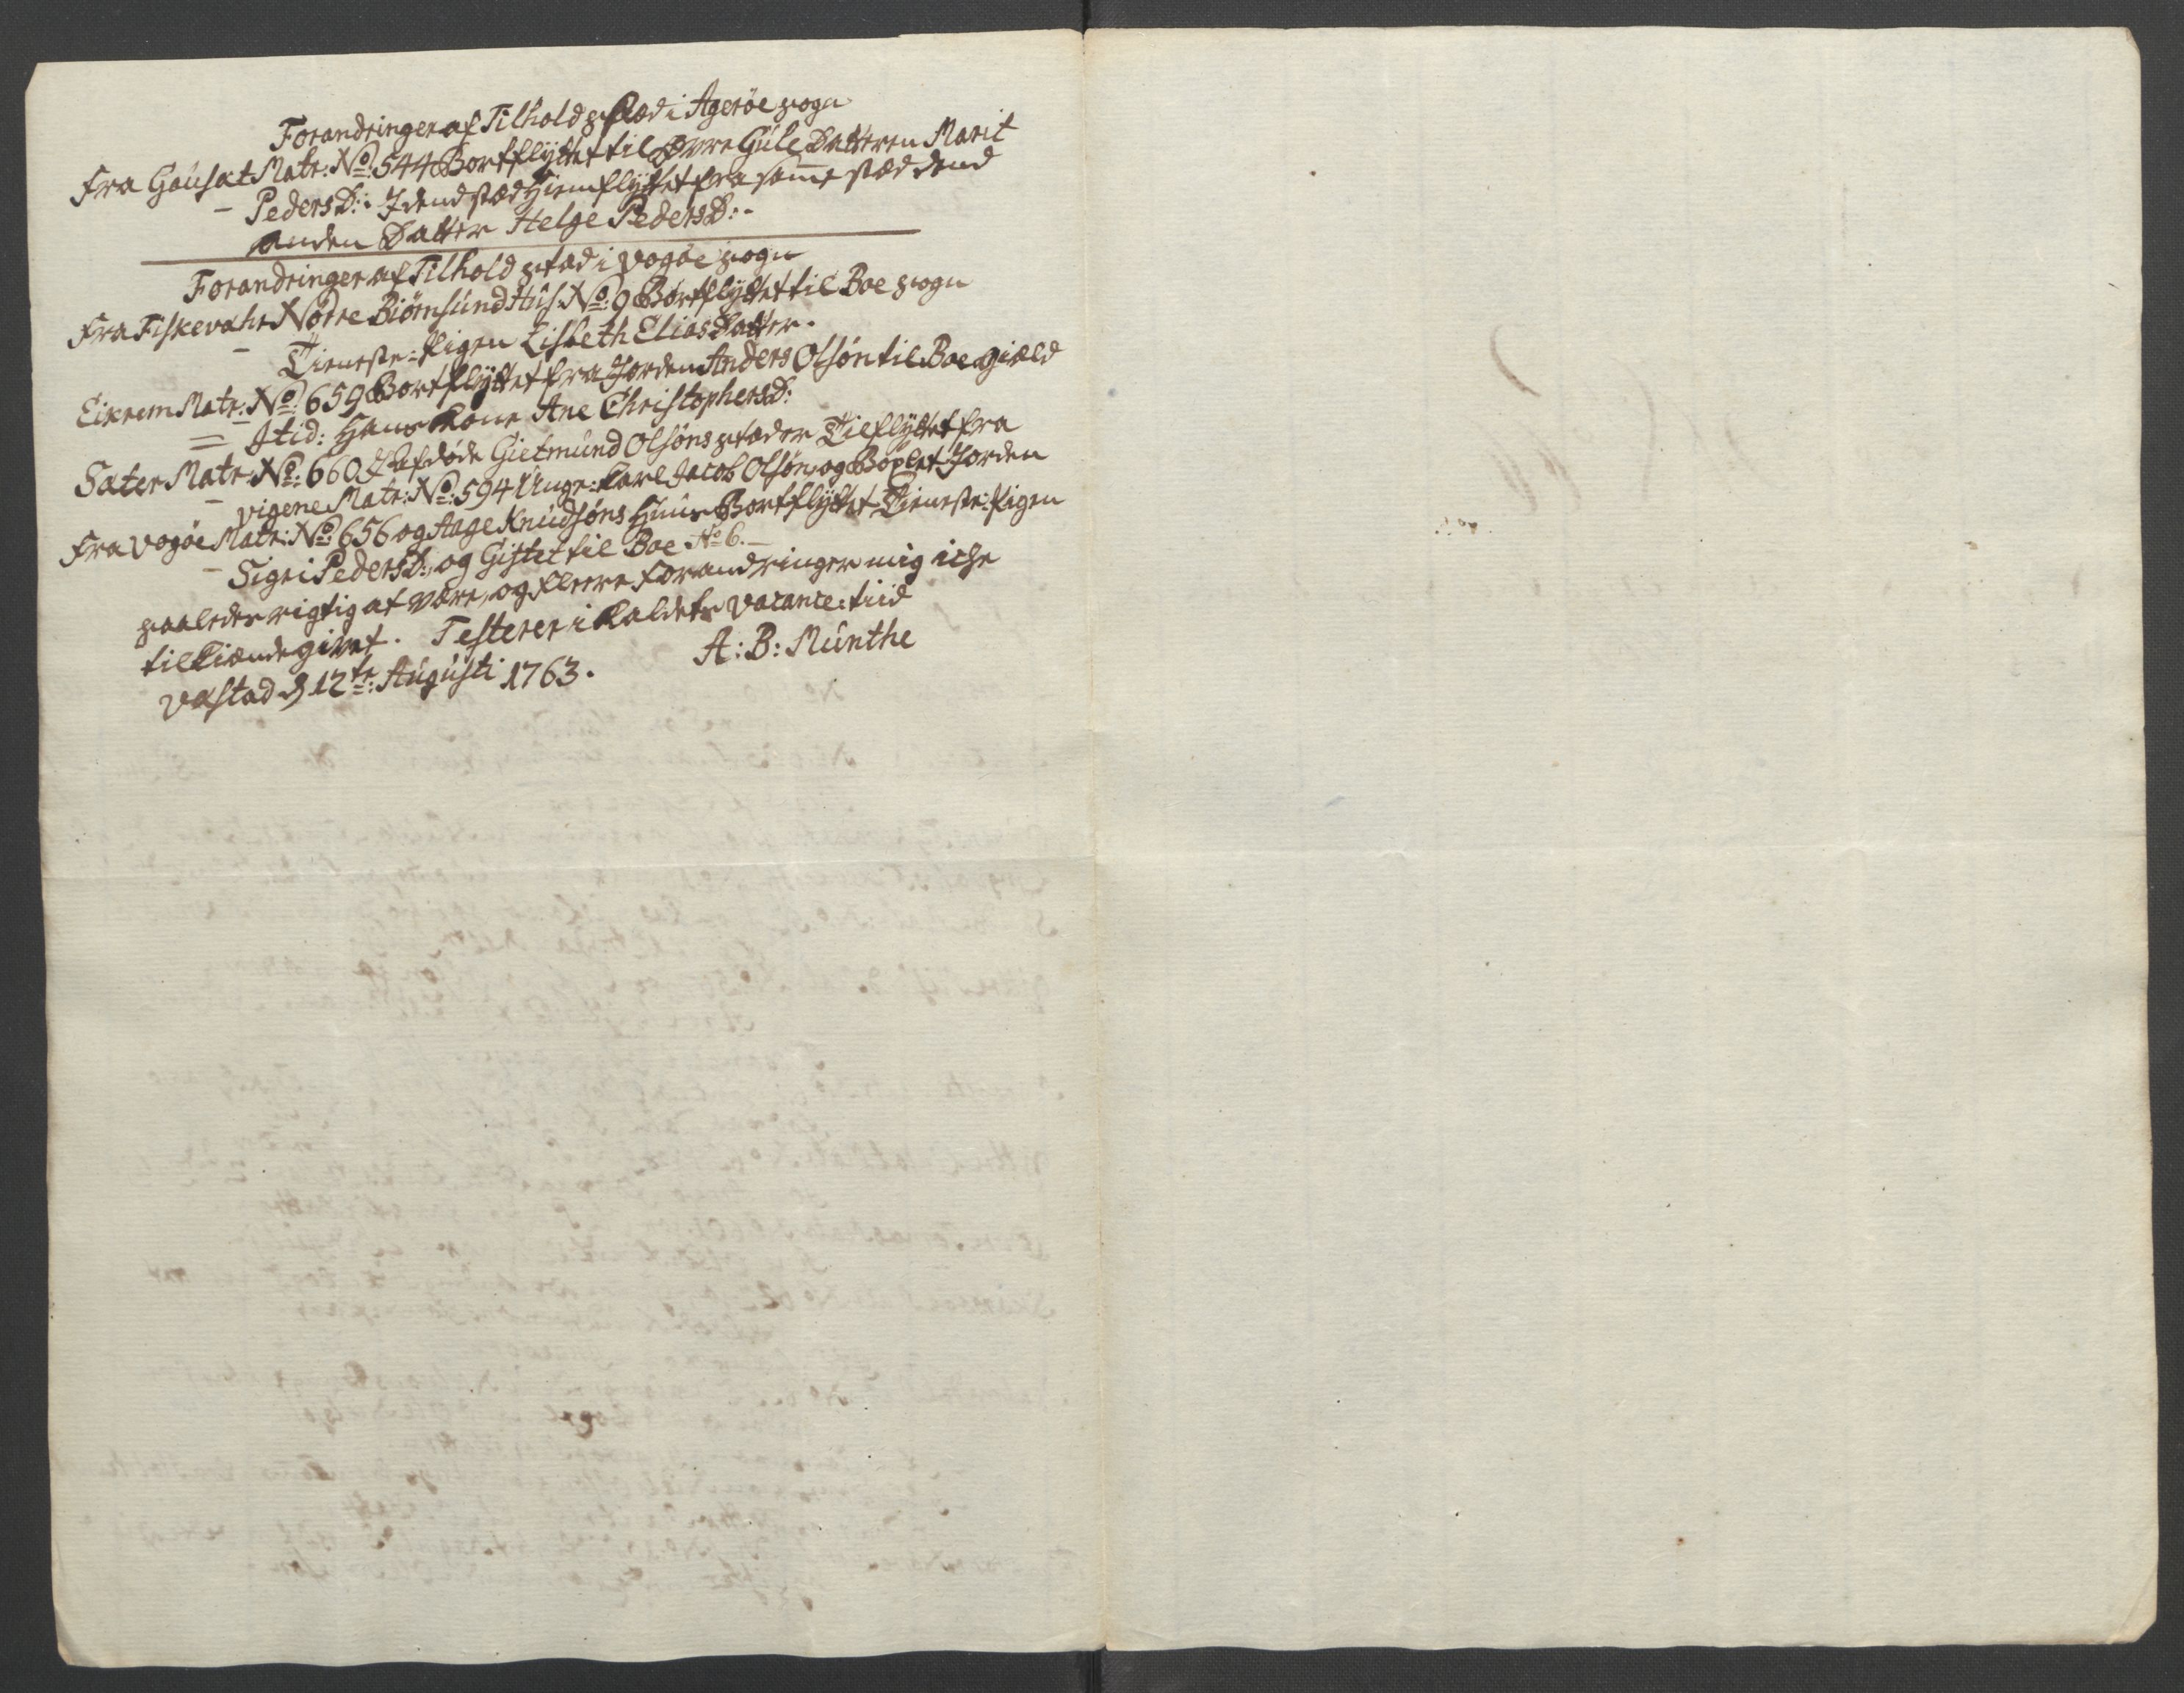 Forandringer af Tilholds stæd i Agerøe sogn
Fra Gaúsæt Matr: No: 544 Bortflyttet til Øvre Gúle Datteren Marit
- Peders D:. I dend stæd Hiemflyttet fra samme stæd dend
anden Datter Helge Peders D:.
Forandringer af Tilholds stæd i Vogøe sogn
Fra Fiskevæhr Nørre Biörnsúnd Hús: No: 9 Bortflyttet til Boe sogn
- Tieneste-Pigen Lisbeth Elias Datter.
Eikrem Matr: No: 659 Bortflyttet fra Jorden Anders Olsøn til Boe Giæld
= Itid: Hans Kone Ane Christophers D:
Sæter Matr: No: 660 I Afdøde Gietmúnd Olsøns stæder Tilflyttet fra
- vigene Matr: No: 594 Unge-Karl Jacob Olsøn og Böxlet Jorden
Fra Vogøe Matr: No: 656 og Aage Knúdsøns Húús Bortflyttet Tieneste-Pigen
- Sigri Peders D: og Giftet til Boe No 6.
saaledes rigtig at være, og fleere Forandringer mig iche
til Kiænde givet. Testerer i Kaldets vacance-tiid
Væstad d 12te Aúgústi 1763. A: B: Múnthe